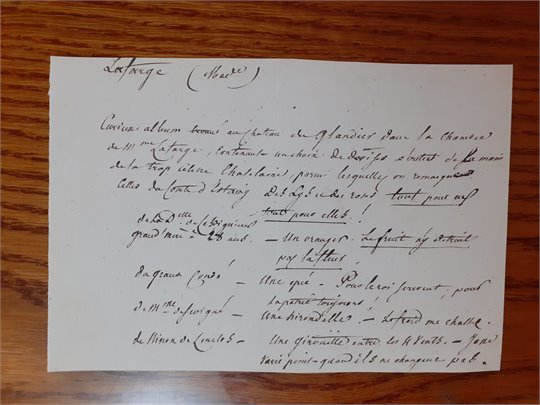 Lafarge (Made)
Curieux album trouvé au chateau du Glandier dans la chambre
de Mme Lafarge, contenant un choix de devises écrites de sa main
de la trop célèbre chatelaine parmi lesquelles on remarque
Celles du Comte d'           des lys et des roses tout pour eux
tout pour elles!
de la Dlle de
grand'mère à     ans. — Un oranger. Le fruit n'y détruit
pas la fleur.
du grand Condé — Une épée. Pour le roi souvent, pour
la patrie toujours!
de Mme de Sévigné — Une hirondelle. — Le froid me chasse.
de Ninon de Lenclos — Une girouette entre les 4 vents. — Je ne
varie point quand ils ne changent pas.